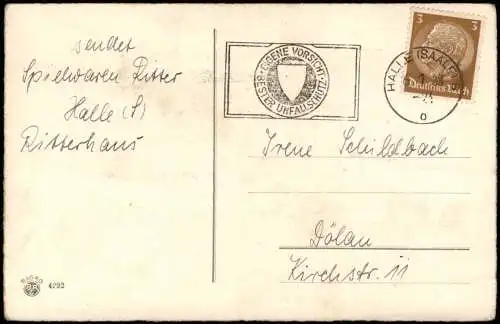 sendet
Spielwaren Ritter
Halle (S)
Ritterhaus
EIGENE VORSICHT
BESTER UNFALLSCHUTZ
HALLE (SAALE)
o
3 3
Deutsches Reich
Irene Schildbach
Dölau
Kirchstr. 11
4292